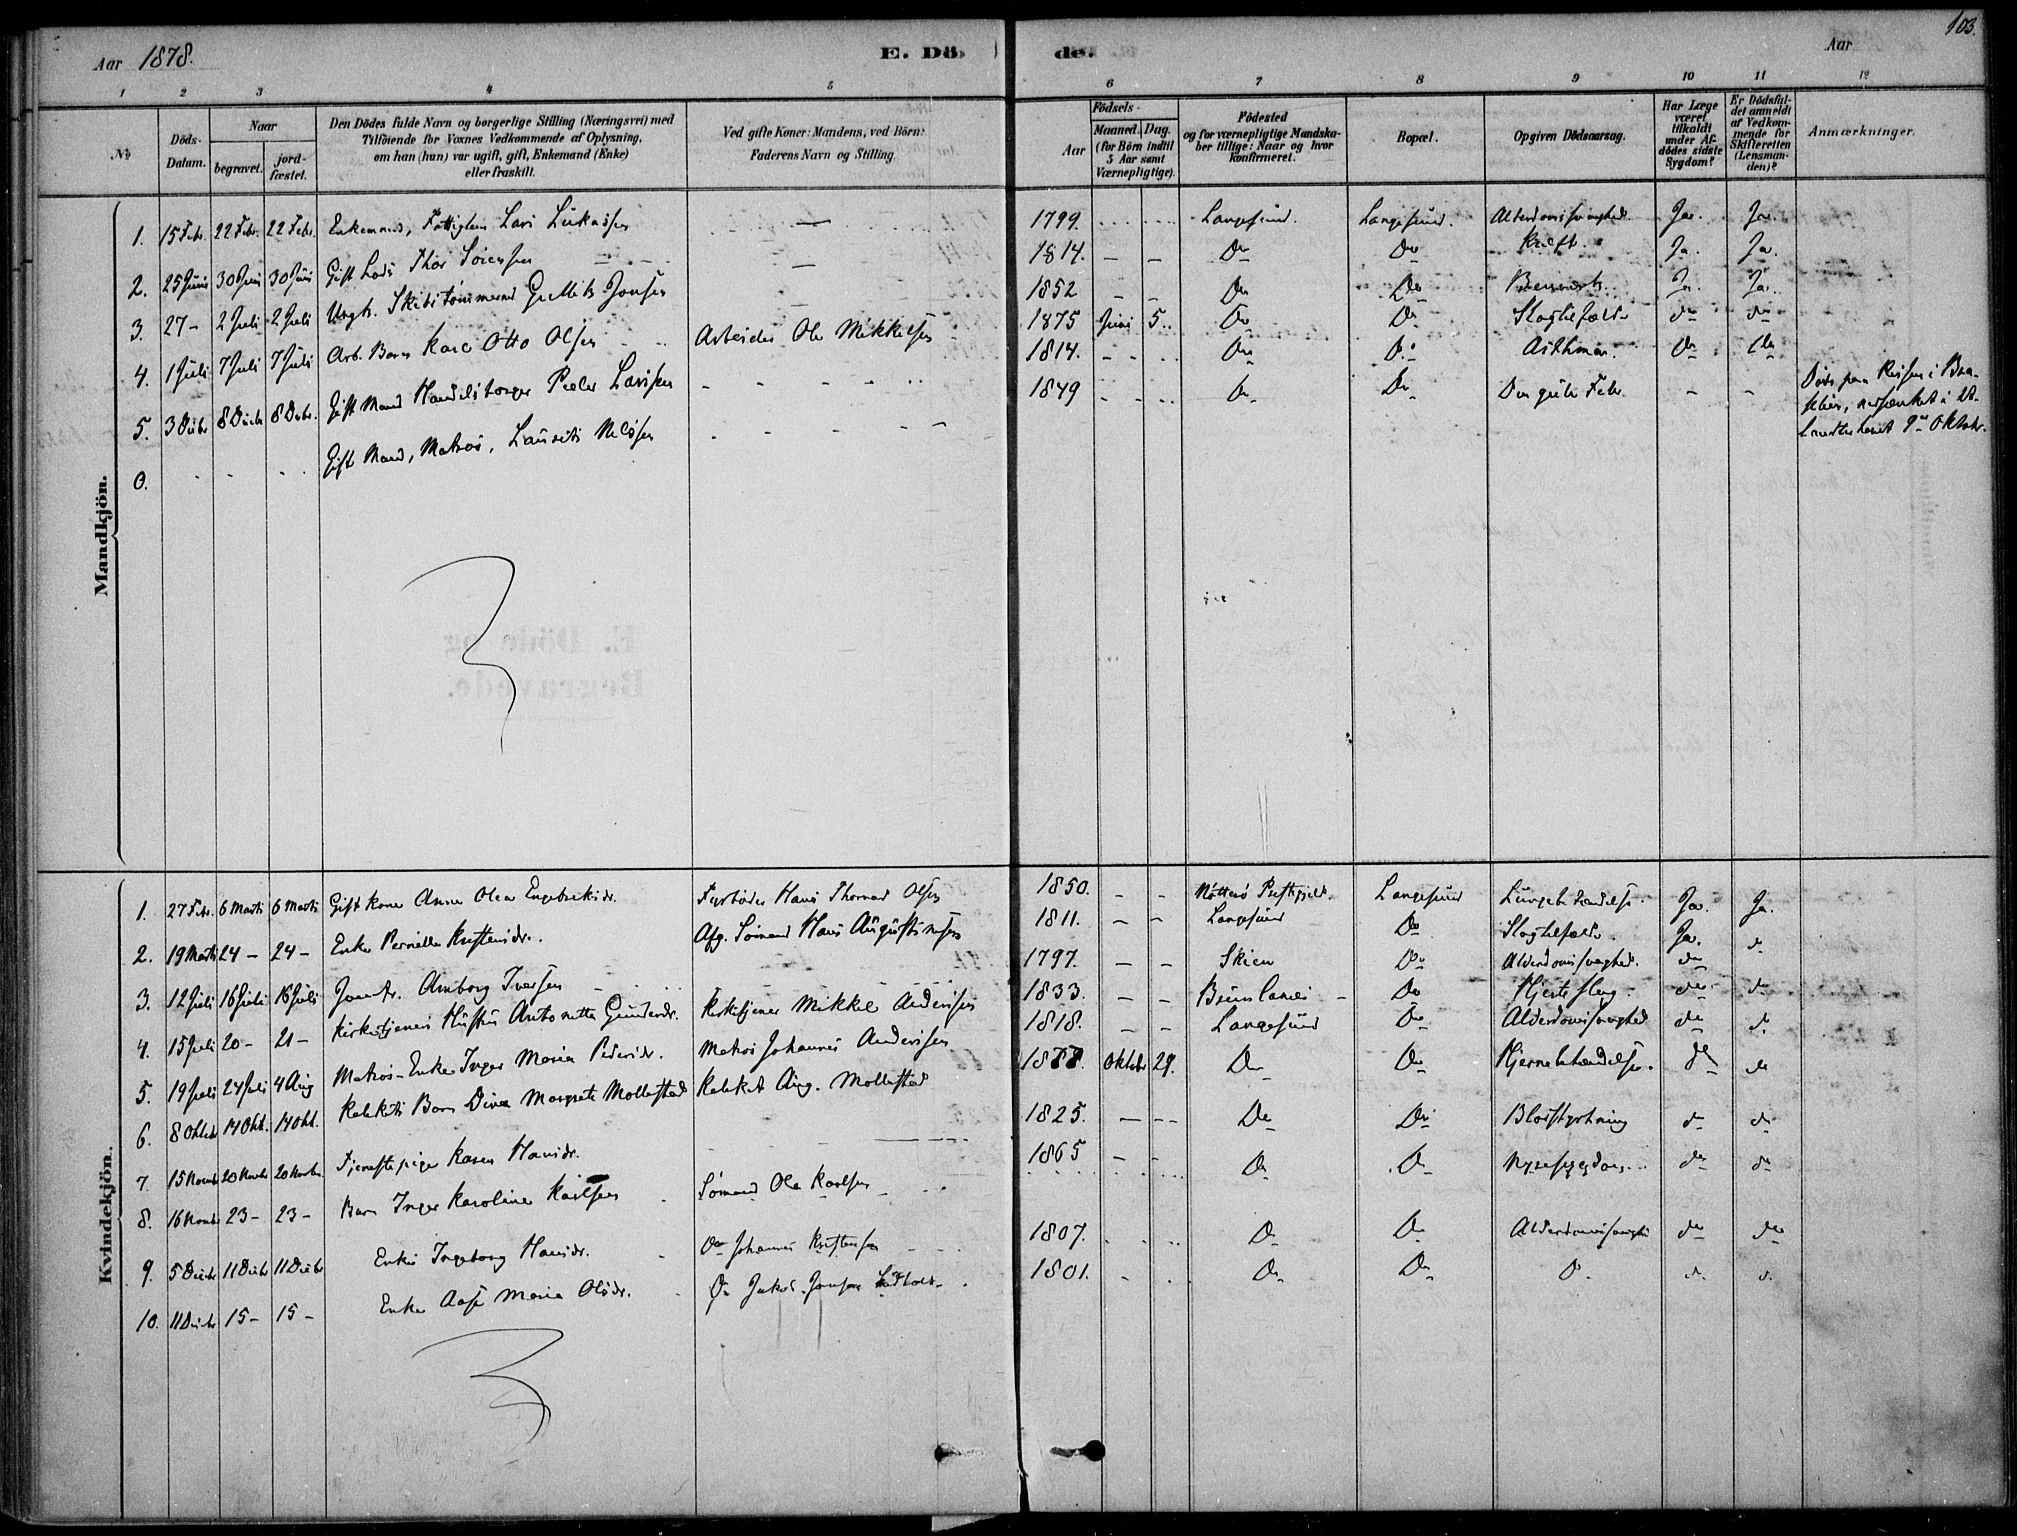 103.
Aar 1878. E. Döde. Aar
1 2 3 4 5 6 7 8 9 10 11 12
No
Döds-Datum.
Naar begravet. jordfæstet.
Den Dödes fulde Navn og borgerlige Stilling (Næringsvei) med
Tilföiende for Voxnes Vedkommende af Oplysning,
om han (hun) var ugift, gift, Enkemand (Enke)
eller fraskilt.
Ved gifte Koner: Mandens, ved Börn:
Faderens Navn og Stilling.
Födsels-
Aar Maaned. Dag.
(for Börn indtil
5 Aar samt
Værnepligtige).
Födested
og for værnepligtige Mandska-
ber tillige: Naar og hvor
konfirmeret.
Bopæl.
Opgiven Dödsaarsag.
Har Læge
været
tilkaldt
under Af-
dödes sidste
Sygdom?
Er Dödsfal-
det anmeldt
af Vedkom-
mende for
Skifteretten
(Lensman-
den)?
Anmærkninger.
Mandkjön.
1. 15 Febr. 22 Febr. 22 Febr. Enkemand, Fattiglem Lars Lukassen — 1799. Langesund. Langesund. Alderdomssvaghed Ja. Ja.
2. 25 Juni 30 Juni 30 Juni Gift Lods Thor Sörensen — 1814. — — Do Do Kræft. Ja. Ja.
3. 27 - 2 Juli 2 Juli Ungk. Skibstömmermand Jonsen — 1852 — — Do Do Ja. Ja.
4. 1 Juli 7 Juli 7 Juli Arb. Barn Karl Otto Olsen Arbeider Ole Mikkelsen 1875 Juni 5. Do Do Slagtilfælde do do
5. 3 Decbr 8 Decbr 8 Decbr. Gift Mand Handelsborger Peder Larsen 1814. Do Do Asthma. Do Do
0. Gift Mand, Matros, Laurits Nilssen 1849 Do Do Den gule Feber. - - Död paa Reisen i Bra-
silien, nedsænket i At-
lanterhavet 9de Oktobr.
Kvindekjön.
1. 27 Febr. 6 Marts 6 Marts Gift Kone Anne Olea Engebretsdr. Fyrböder Hans Thomas Olsen 1850. — — Nötterö Præstegjeld. Langesund Lungebetændelse. Ja. Ja.
2. 19 Marts 24 - 24 - Enke Pernille Kristensdr. Afg. Sömand Hans Augustinusen 1811. — — Langesund Do Slagtilfælde. Ja. do
3. 12 Juli 16 Juli 16 Juli Amborg Iversen 1797. — — Skien Do Alderdomssvaghed. do
4. 15 Juli 20 - 21 - Kirketjeners Hustru Antonette Gundersdr. Kirketjener Mikkel Andersen 1833. — — Brunlanes Do Hjerteslag. do do
5. 19 Juli 24 Juli 4 Aug Matros-Enke Inger Maria Pedersdr. Matros Johannes Andersen 1818. — — Langesund Do Alderdomssvaghed do do
6. 8 Oktobr 14 Okt. 14 Okt. Barn Dina Margrete Mollestad Aug. Mollestad 1877. Oktobr 29. Do Do Hjernebetændelse. do do
7. 15 Novbr 20 Novbr 20 Novbr. Tjenestepige Karen Hansdr. 1825. — — Do Do Blodstyrtning do do
8. 16 Novbr 23 - 23 - Barn Inger Karoline Karlsen Sömand Ole Karlsen 1865 — — Do Do Nyresygdom do do
9. 5 Decbr 11 Decbr 11 Decbr Enke Ingeborg Hansdr. Do Johannes Kristensen 1807. Do Do Alderdomssvaghed do do
10. 11 Decbr 15 - 15 - Enke Aase Maria Olsdr. Do Jakob Jonsen 1801. Do Do Do do do